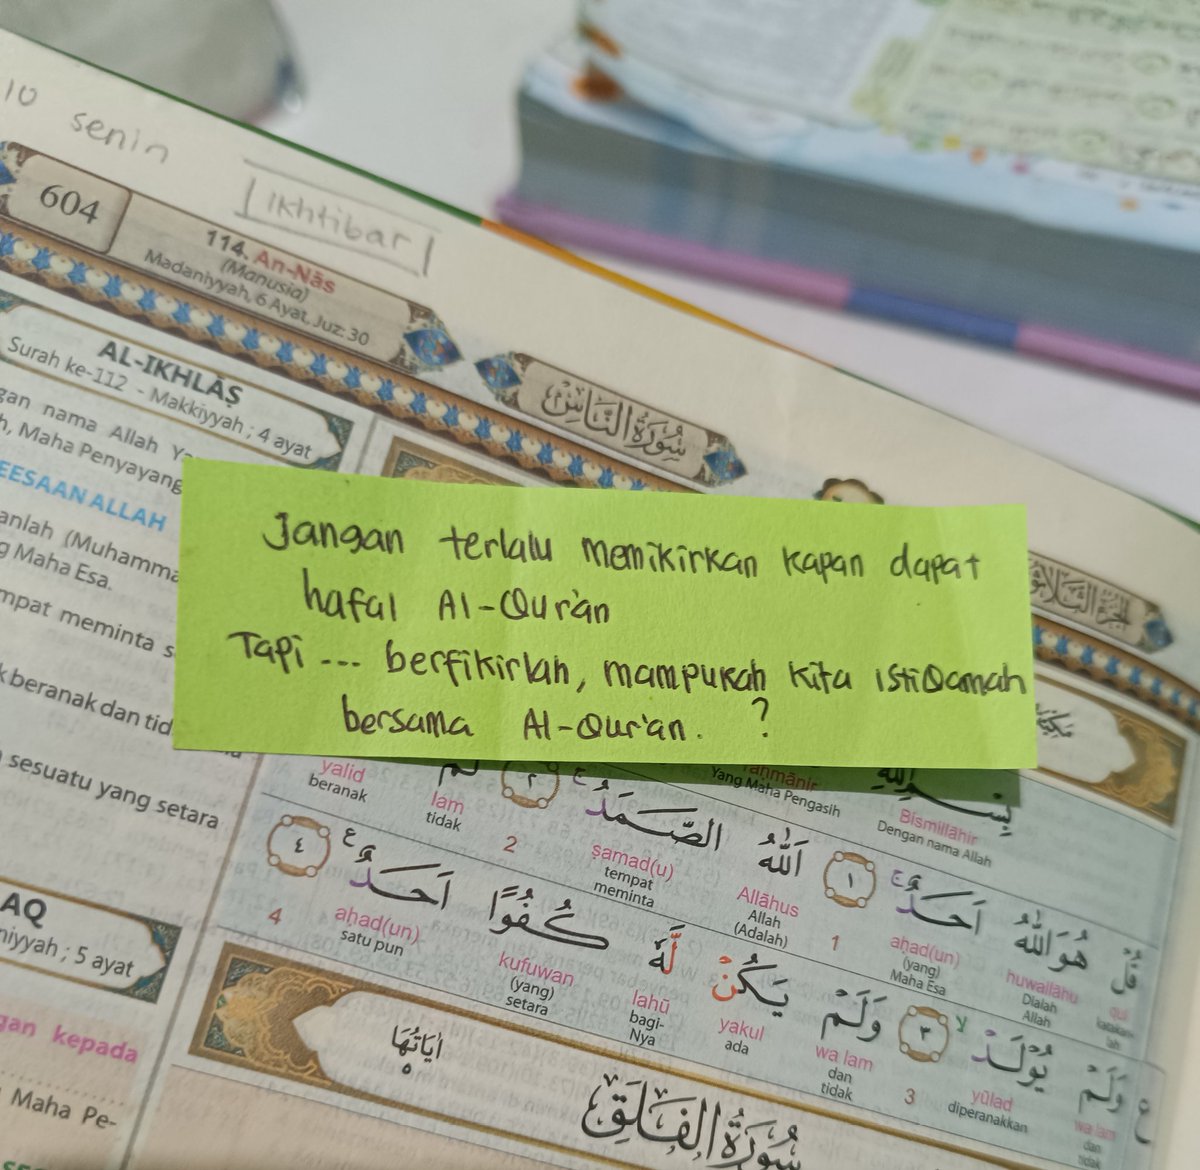 10 senin
Ikhtibar
604
114. An-Nās
(Manusia)
Madaniyyah, 6 Ayat, Juz: 30
سُورَةُ النَّاسِ
AL-IKHLAṢ
Surah ke-112 - Makkiyyah ; 4 ayat
gan nama Allah Y
h, Maha Penyayang
EESAAN ALLAH
anlah (Muhamma
g Maha Esa.
mpat meminta s
k beranak dan tid
sesuatu yang setara
Jangan terlalu memikirkan kapan dapat
hafal Al-Qur'an
Tapi ... berfikirlah, mampukah kita istiQamah
bersama Al-Qur'an. ?
Bismillāhir
Dengan nama Allah
raḥmānir
Yang Maha Pengasih
قُلْ هُوَ اللّٰهُ اَحَدٌ ۚ ١ اَللّٰهُ الصَّمَدُ ۚ ٢ لَمْ
qul huwallāhu aḥad(un) 1 Allāhus ṣamad(u) 2 lam yalid
katakan-lah Dialah Allah (yang) Maha Esa Allah (Adalah) tempat meminta tidak beranak
وَلَمْ يُوْلَدْ ۙ ٣ وَلَمْ يَكُنْ لَّهٗ كُفُوًا اَحَدٌ ࣖ ٤
wa lam yūlad 3 wa lam yakul lahū kufuwan aḥad(un) 4
dan tidak diperanakkan dan tidak ada bagi-Nya (yang) setara satu pun
AQ
niyyah ; 5 ayat
gan kepada
Maha Pe-
اٰيَاتُهَا ٥
سُورَةُ الْفَلَقِ